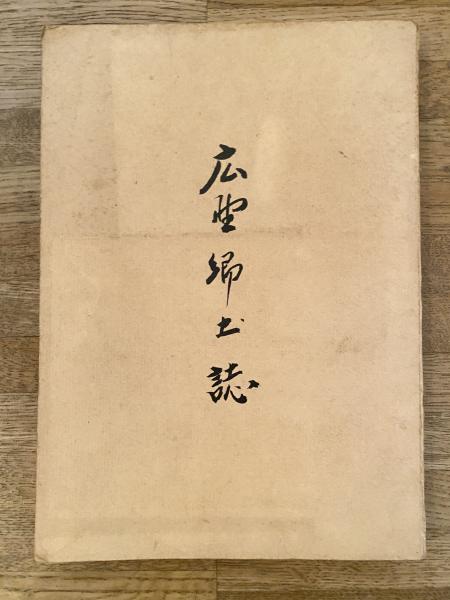 広野郷土誌